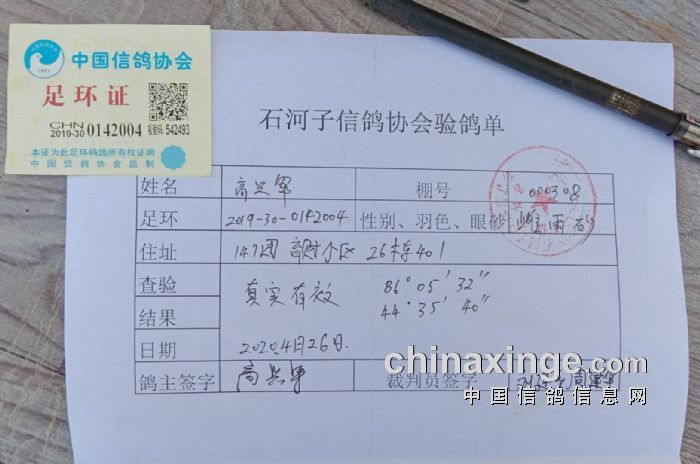 中国信鸽协会
足环证
CHN
2019-30 0142004
校验码: 542493
本证为此足环码鸽所有权证明
中国信鸽协会监制
石河子信鸽协会验鸽单
姓名 高兴军 棚号 000308
足环 2019-30-0142004 性别、羽色、眼砂 雌 雨 砂
住址 147团 小区 26栋401
查验 真实有效 86°05′32″
结果 44°35′40″
日期 2020.4月26日.
鸽主签字 高兴军 裁判员签字 周建华
chinaxinge.com
中国信鸽信息网